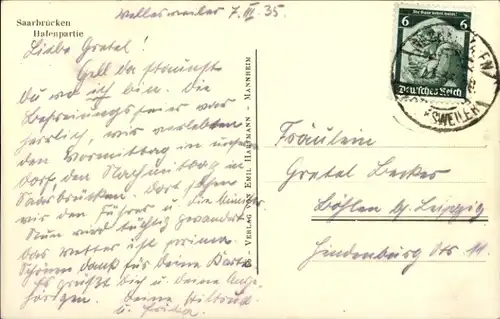 Saarbrücken
Hafenpartie
Wellesweiler 7. III. 35.
Liebe Gretel!
Gell da staunst
Du wo ich bin. Die
Befreiungsfeier war
herrlich, wir verlebten
den Vormittag in unserm
Dorf den Nachmittag in
Saarbrücken. Dort sahen
wir den Führer u. die Minister
Nun wird tüchtig gewandert
Das Wetter ist prima.
Schönen Dank für Deine Karte
Es grüßt Dich u. Deine Ange-
hörigen. Deine Hiltrud
u. Frieda
VERLAG VON EMIL HARTMANN - MANNHEIM
Die Saar kehrt heim!
6 6
Deutsches Reich
Fräulein
Gretel Becker
Böhlen b/ Leipzig
Hindenburg Str. 11